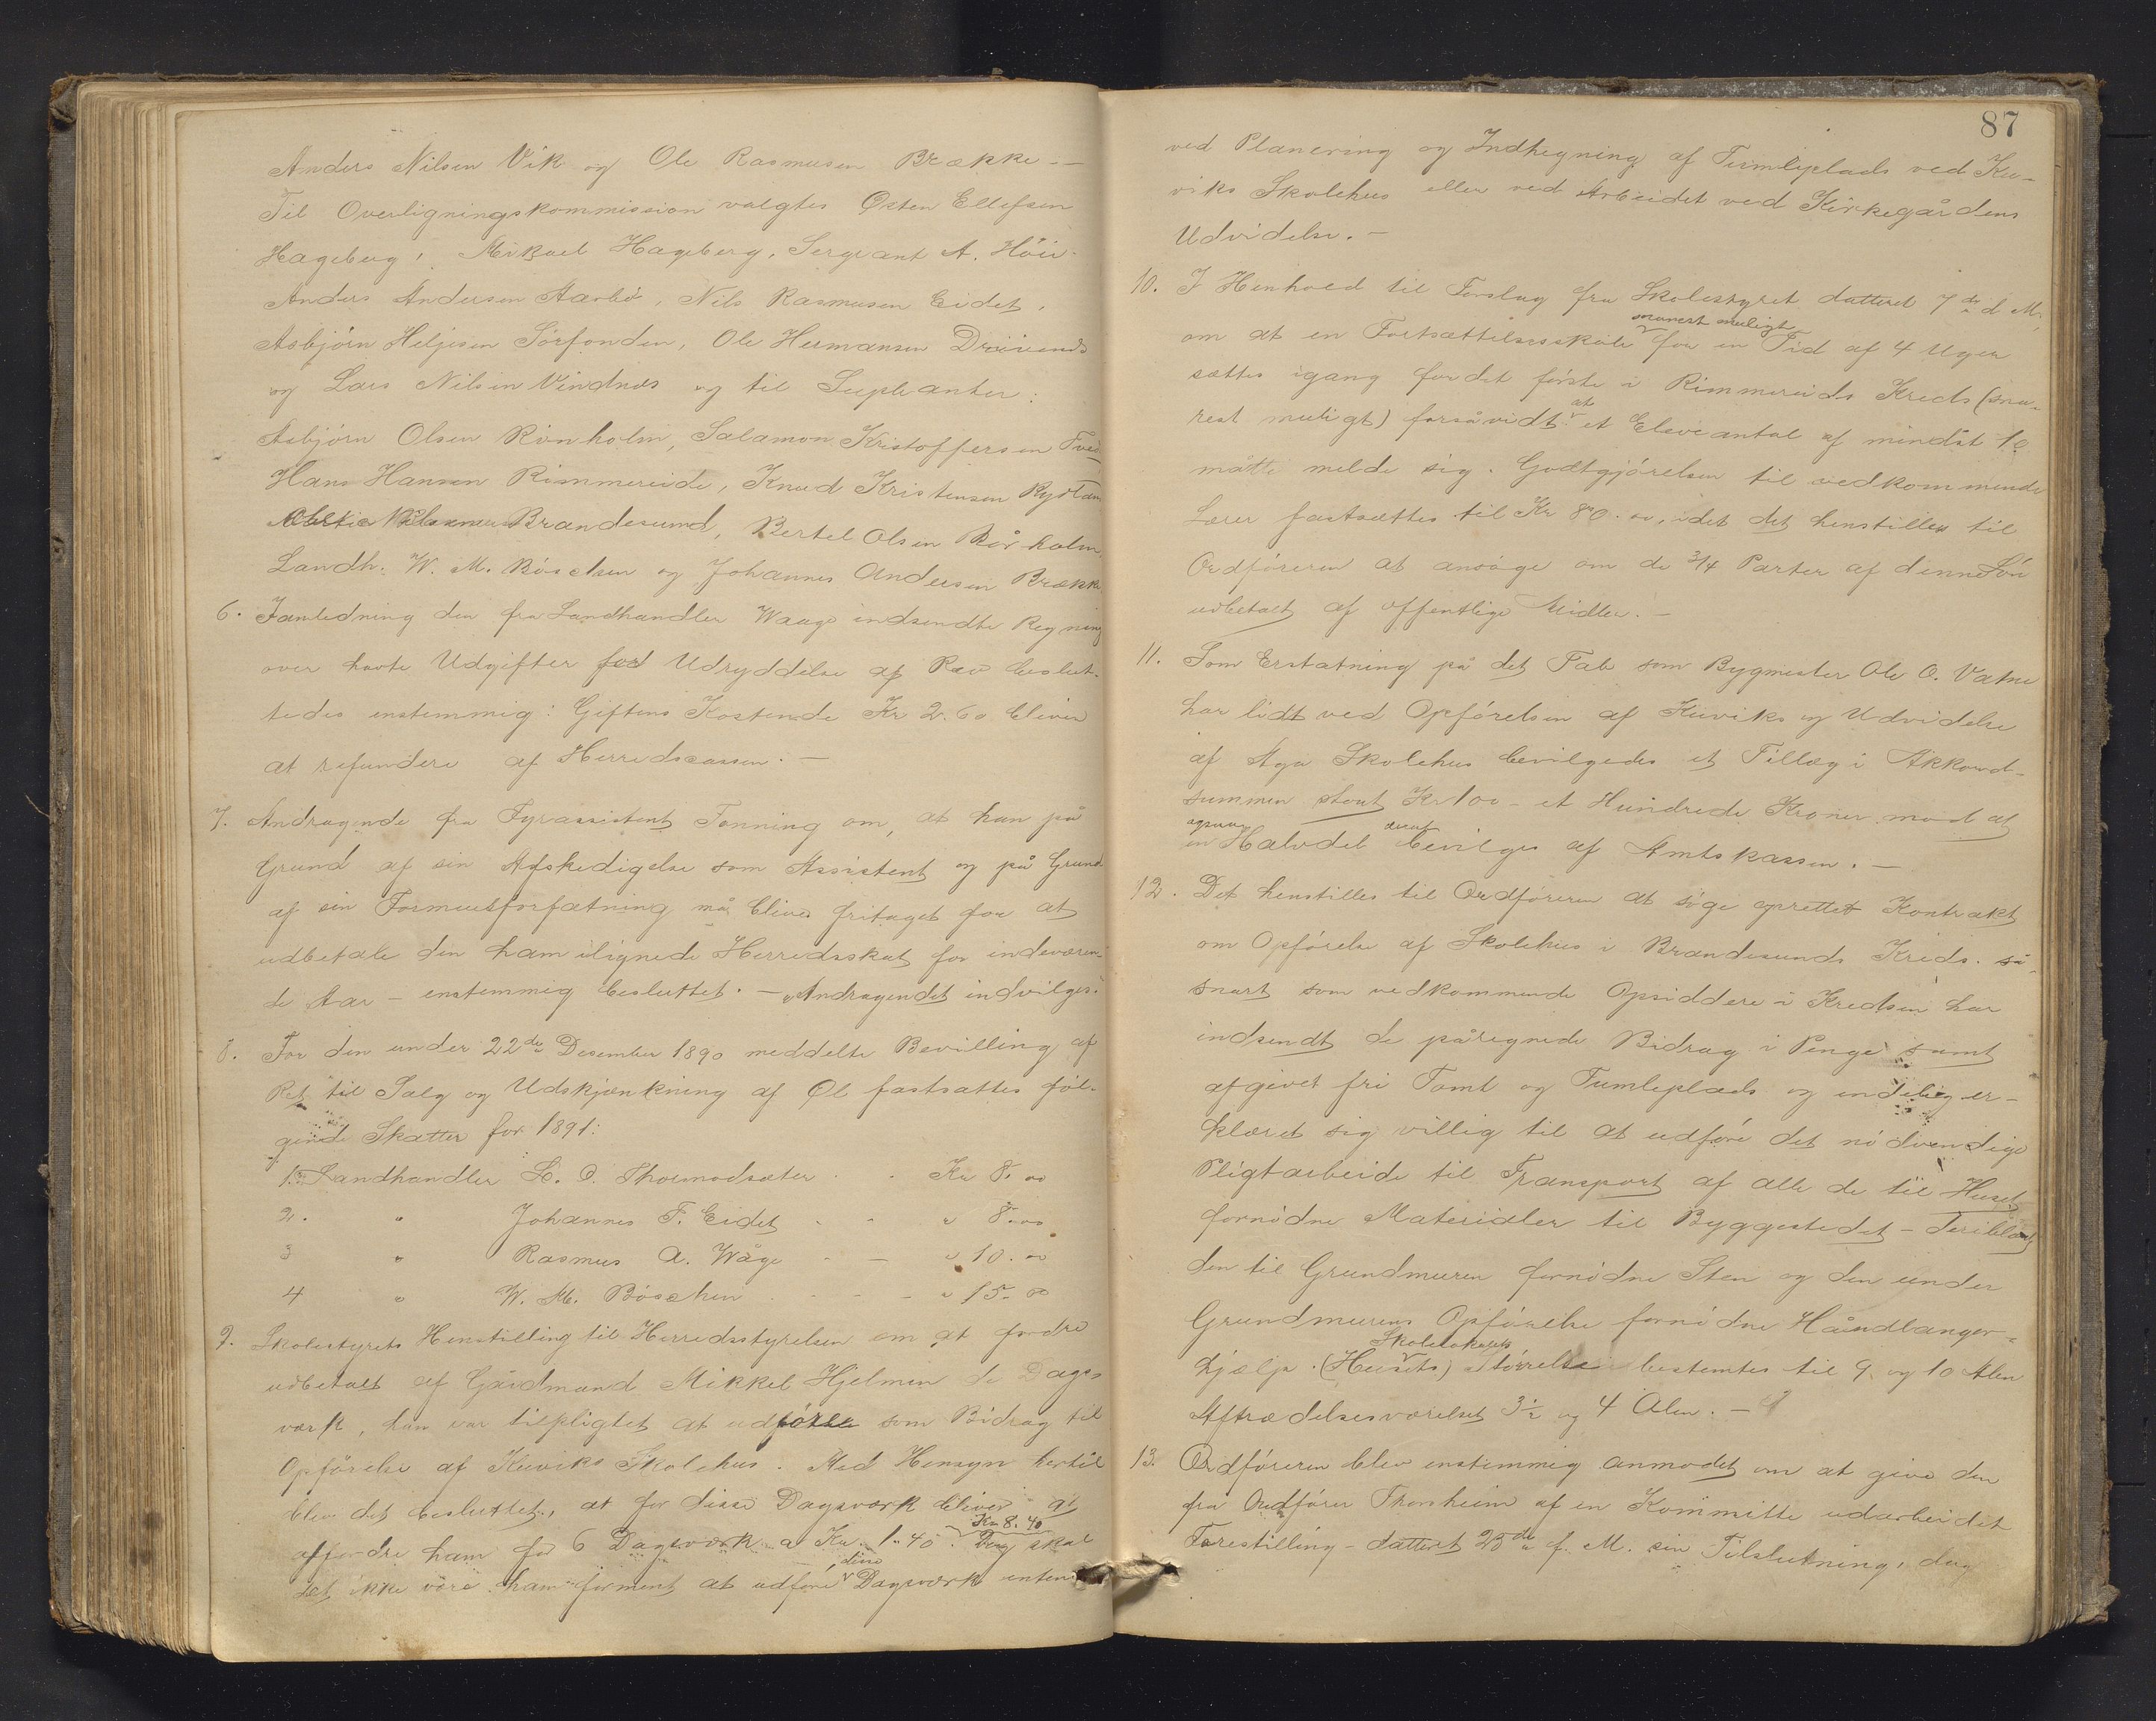 Anders Nilsen Vik og Ole Rasmusen Brække —
Til Overligningskommission valgtes Østen Ellefsen
Hageberg, Mikael Hageberg, Sergeant A. Høie
Anders Andersen Aarbø, Nils Rasmusen Eidet,
Asbjørn Heljesen Sørfonden, Ole Hermansen
og Lars Nilsen Vindnes og til Supleanter:
Asbjørn Olsen Rønholm, Salamon Kristoffersen
Hans Hansen Rimmereide, Knud Kristensen
Brandesund, Bertel Olsen
Landh. W. M. Bøschen og Johannes Andersen Brække
6. Ianledning den fra Landhandler Waage indsendte Regning
over havte Udgifter ved Udryddelse af Ræv beslut-
tedes enstemmig: Giftens Kostende Kr 2.60 bliver
at refundere af Herredscassen. —
7. Andragende fra Fyrassistent Tonning om, at han på
Grund af sin Afskedigelse som Assistent og på Grund
af sin Formuesforfatning må blive fritaget for at
udbetale den ham ilignede Herredsskat for indeværen-
de Aar – enstemmig besluttet. – Andragendet indvilges.
8. For den under 22de Desember 1890 meddelte Bevilling af
Ret til Salg og Udskjænkning af Øl fastsattes føl-
gende Skatter for 1891:
1. Landhandler L. O. Thormodsæter Kr 8. 00
2. " Johannes F. Eidet " 8. 00
3 " Rasmus A. Wåge " 10. 00
4 " W. M. Bøschen " 15. 00
9. Skolestyrets Henstilling til Herredsstyrelsen om at fordre
udbetalt af Gårdmand Mikkel Hjelmen de Dags-
værk, han var tilpligtet at udføre som Bidrag til
Opførelse af Kuviks Skolehus. Med Hensyn hertil
blev det besluttet, at for disse Dagsværk bliver at
Kr 8. 40
affordre ham for 6 Dagsværk a Kr. 1.40. Dog skal
disse
det ikke være ham forment at udføre Dagsværk enten
87
ved Planering og Indhegning af Tumleplads ved Ku-
viks Skolehus eller ved Arbeidet ved Kirkegårdens
Udvidelse. —
10. I Henhold til Forslag fra Skolestyret datteret 7de d. M.,
snarest muligt
om at en Fortsættelsesskole for en Tid af 4 Uger
sættes igang for det første i Rimmereids Kreds (sna-
at
rest muligt) forsåvidt et Elevantal af mindst
måtte melde sig. Godtgjørelsen til vedkommende
Lærer fastsættes til Kr 80. 00, idet det henstilles til
Ordføreren at ansøge om de 3/4 Parter af denne Løn
udbetalt af offentlige Midler. —
11. Som Erstatning på det Tab som Bygmester Ole O. Vatne
har lidt ved Opførelsen af Kuviks og Udvidelse
af Aga Skolehus bevilgedes et Tillæg i Akkord-
summen stort Kr 100 – et Hundrede Kroner mod at
en Halvdel bevilges af Amtskassen. —
12. Det henstilles til Ordføreren at søge oprettet Kontrakt
om Opførelse af Skolehus i Brandesunds Kreds. så-
snart som vedkommende Opsiddere i Kredsen har
indsendt de påregnede Bidrag i Penge samt
afgivet fri Tomt og Tumleplads og endelig er-
klæret sig villig til at udføre det nødvendige
Pligtarbeide til Transport af alle de til Huset
fornødne Materialer til Byggestedet – deriblant
den til Grundmuren fornødne Sten og den under
Grundmurens Opførelse fornødne Håndlanger-
Skolelokalets
hjælp. (Husets) Størrelse bestemtes til 9 og 10 Alen
Aftrædelsesværelset 3½ og 4 Alen. —
13. Ordføreren blev enstemmig anmodet om at give den
fra Ordfører Thorsheim af en Kommitte udarbeidet
Forestilling – datteret 25de f. M. sin Tilslutning, dog